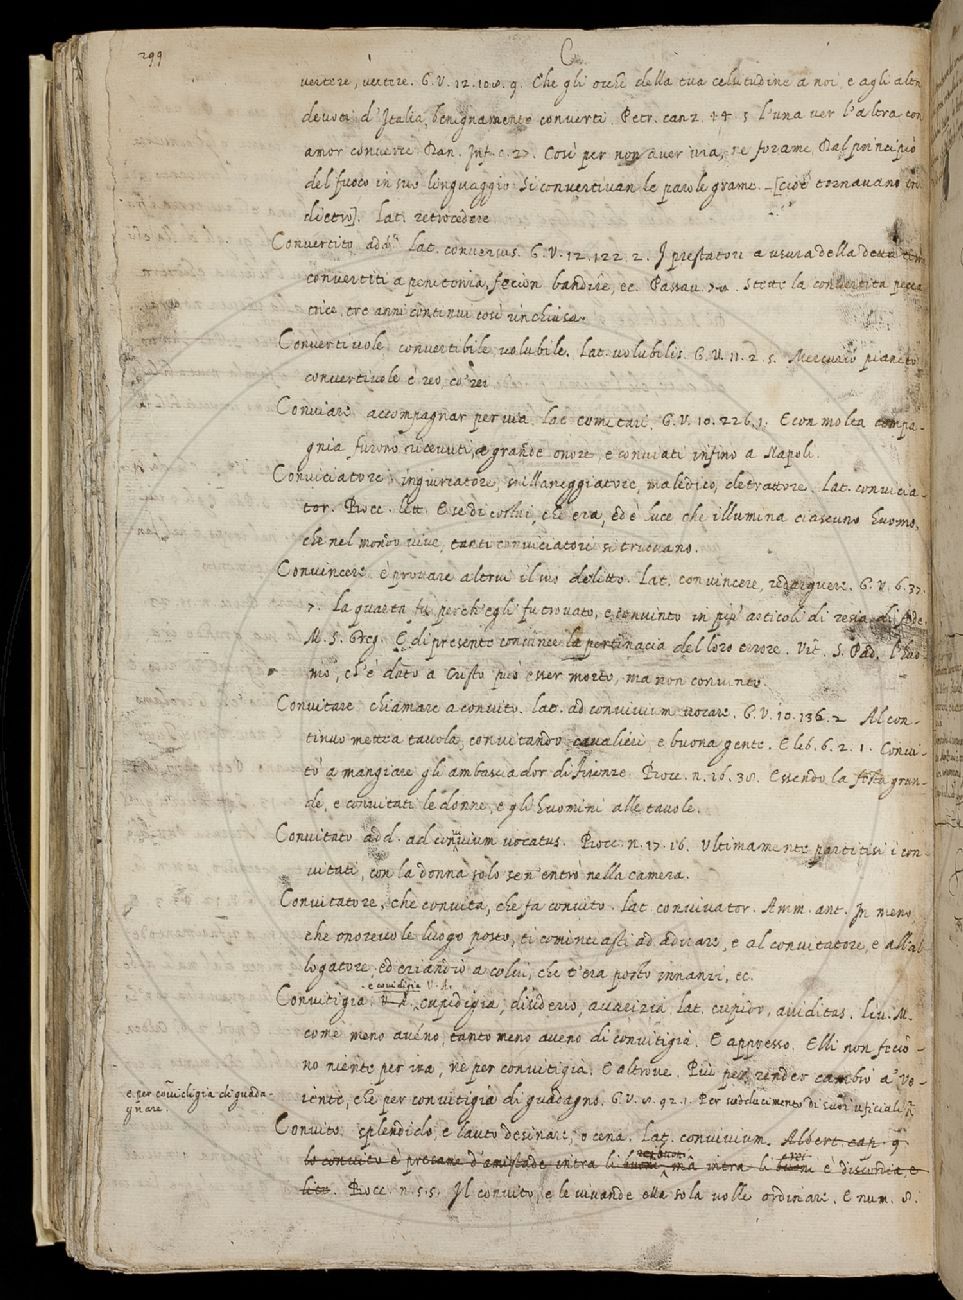 299
C
vertere, vertere. G.V. 12. 108. 9. Che gli occhi della tua celsitudine a noi, e agli altri
devoti d'Italia, benignamente converti. Petr. canz. 44. 5 l'una ver l'altra con
amor converte Dan. Inf. c. 27. Così per non aver via, ne forame Dal principio
del fuoco in suo linguaggio Si convertivan le parole grame. [cioè tornavano in
dietro]. Lat. retrocedere
Convertito add. Lat. conversus. G.V. 12. 122. 2. I prestatori a usura della detta
convertiti a penitenzia, fecion bandire, ec. Passav. 70. Stette la convertita pecca
trice, tre anni continui così rinchiusa.
Convertivole, convertibile, volubile. Lat. volubilis. G.V. 11. 2. 5. Mercurio pianeto
convertivole è reo, co' rei
Conviare accompagnar per via. Lat. comitari. G.V. 10. 226. 1. E con molta compa-
gnia furono ricevuti, e grande onore, e conviati infino a Napoli.
Conviciatore, ingiuriatore, svillaneggiatore, maledico, detrattore. Lat. convicia-
tor. Bocc. lett. E se di costui, che era, ed è luce che illumina ciascuno huomo,
che nel mondo vive, tanti conviciatori si truovano.
Convincere è provare altrui il suo delitto. Lat. convincere, redarguere. G.V. 6. 37.
7. La quarta fu, perch'egli fu trovato, e convinto in più articoli di resia di fede
M. S. Greg. E di presente convince la pertinacia del loro errore. Vit. S. Pad. l'huo-
mo, ch'è dato a Cristo può esser morto, ma non convinto.
Convitare, chiamare a convito. Lat. ad convivium vocare. G.V. 10. 136. 2 Al con-
tinuo mettea tavola, convitando cavalieri, e buona gente. E lib. 6. 2. 1. Convi-
tò a mangiare gli ambasciador di Firenze. Bocc. n. 16. 38. Essendo la festa gran-
de, e convitati le donne, e gli huomini alle tavole.
Convitato add. ad convivium vocatus. Bocc. n. 17. 16. Ultimamente partitisi i con-
vitati, con la donna solo se n'entrò nella camera.
Convitatore, che convita, che fa convito. Lat. convivator. Amm. ant. In meno
che onorevole luogo posto, ti cominciasti ad adirare, e al convitatore, e all'al
logatore, ed eziandio a colui, che t'era posto innanzi, ec.
e covidigia V. A.
Convitigia. V. A. cupidigia, disiderio, avarizia, Lat. cupido, aviditas. Liv. M.
come meno aveno, tanto meno aveno di convitigia. E appresso. Elli non fecio-
no niente per ira, ne per convitigia. E altrove. Più per render cambio a' Vo-
iente, che per convitigia di guadagno. G.V. 8. 92. 1. Per seducimento di suoi uficiali,
e per covidigia di guada-
gnare
Convito, splendido, e lauto desinare, o cena. Lat. convivium. Albert. cap. 9
lo convito è procana d'amistade intra li buoni, ma intra li buoni è discordia, e
lite. Bocc. n. 5. 5. Il convito, e le vivande ella sola volle ordinare. E num. 8.